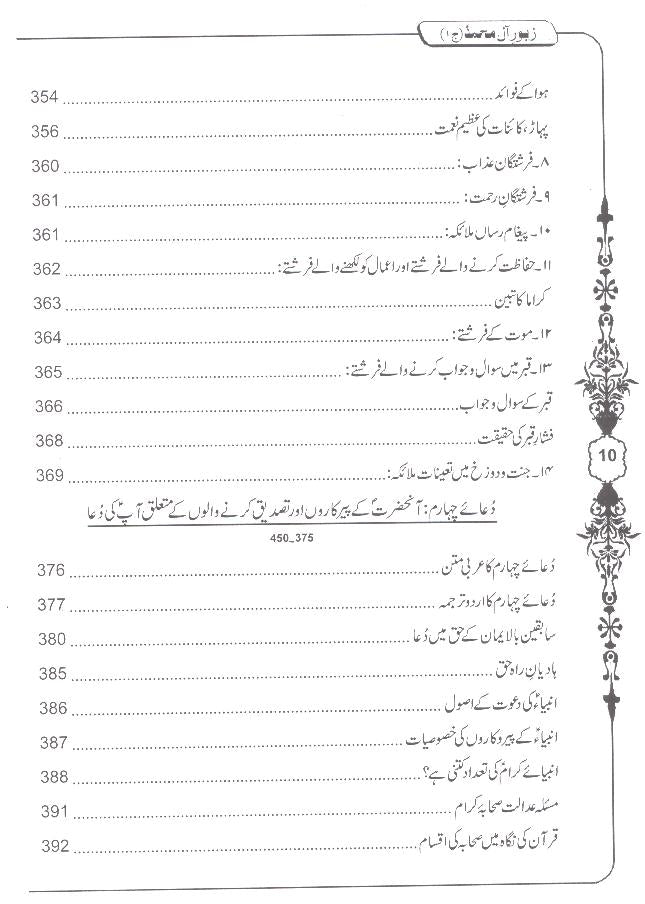 زبورِ آلِ محمدؐ (ج۱)
ہوا کے فوائد 354
پہاڑ، کائنات کی عظیم نعمت 356
۸۔ فرشتگان عذاب: 360
۹۔ فرشتگانِ رحمت: 361
۱۰۔ پیغام رساں ملائکہ: 361
۱۱۔ حفاظت کرنے والے فرشتے اور اعمال کو لکھنے والے فرشتے: 362
کراماً کاتبین 363
۱۲۔ موت کے فرشتے: 364
۱۳۔ قبر میں سوال و جواب کرنے والے فرشتے: 365
قبر کے سوال و جواب 366
فشارِ قبر کی حقیقت 368
۱۴۔ جنت و دوزخ میں تعینات ملائکہ: 369
10
دُعائے چہارم: آنحضرتؐ کے پیرکاروں اور تصدیق کرنے والوں کے متعلق آپؑ کی دُعا
375_450
دُعائے چہارم کا عربی متن 376
دُعائے چہارم کا اردو ترجمہ 377
سابقین بالایمان کے حق میں دُعا 380
ہادیانِ راہ حق 385
انبیاءؑ کی دعوت کے اصول 386
انبیاءؑ کے پیروکاروں کی خصوصیات 387
انبیائے کرامؑ کی تعداد کتنی ہے؟ 388
مسئلہ عدالت صحابہ کرام 391
قرآن کی نگاہ میں صحابہ کی اقسام 392